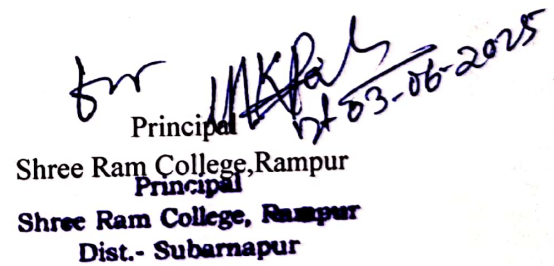 for
Dt 03-06-2025
Principal
Shree Ram College,Rampur
Principal
Shree Ram College, Rampur
Dist.- Subarnapur